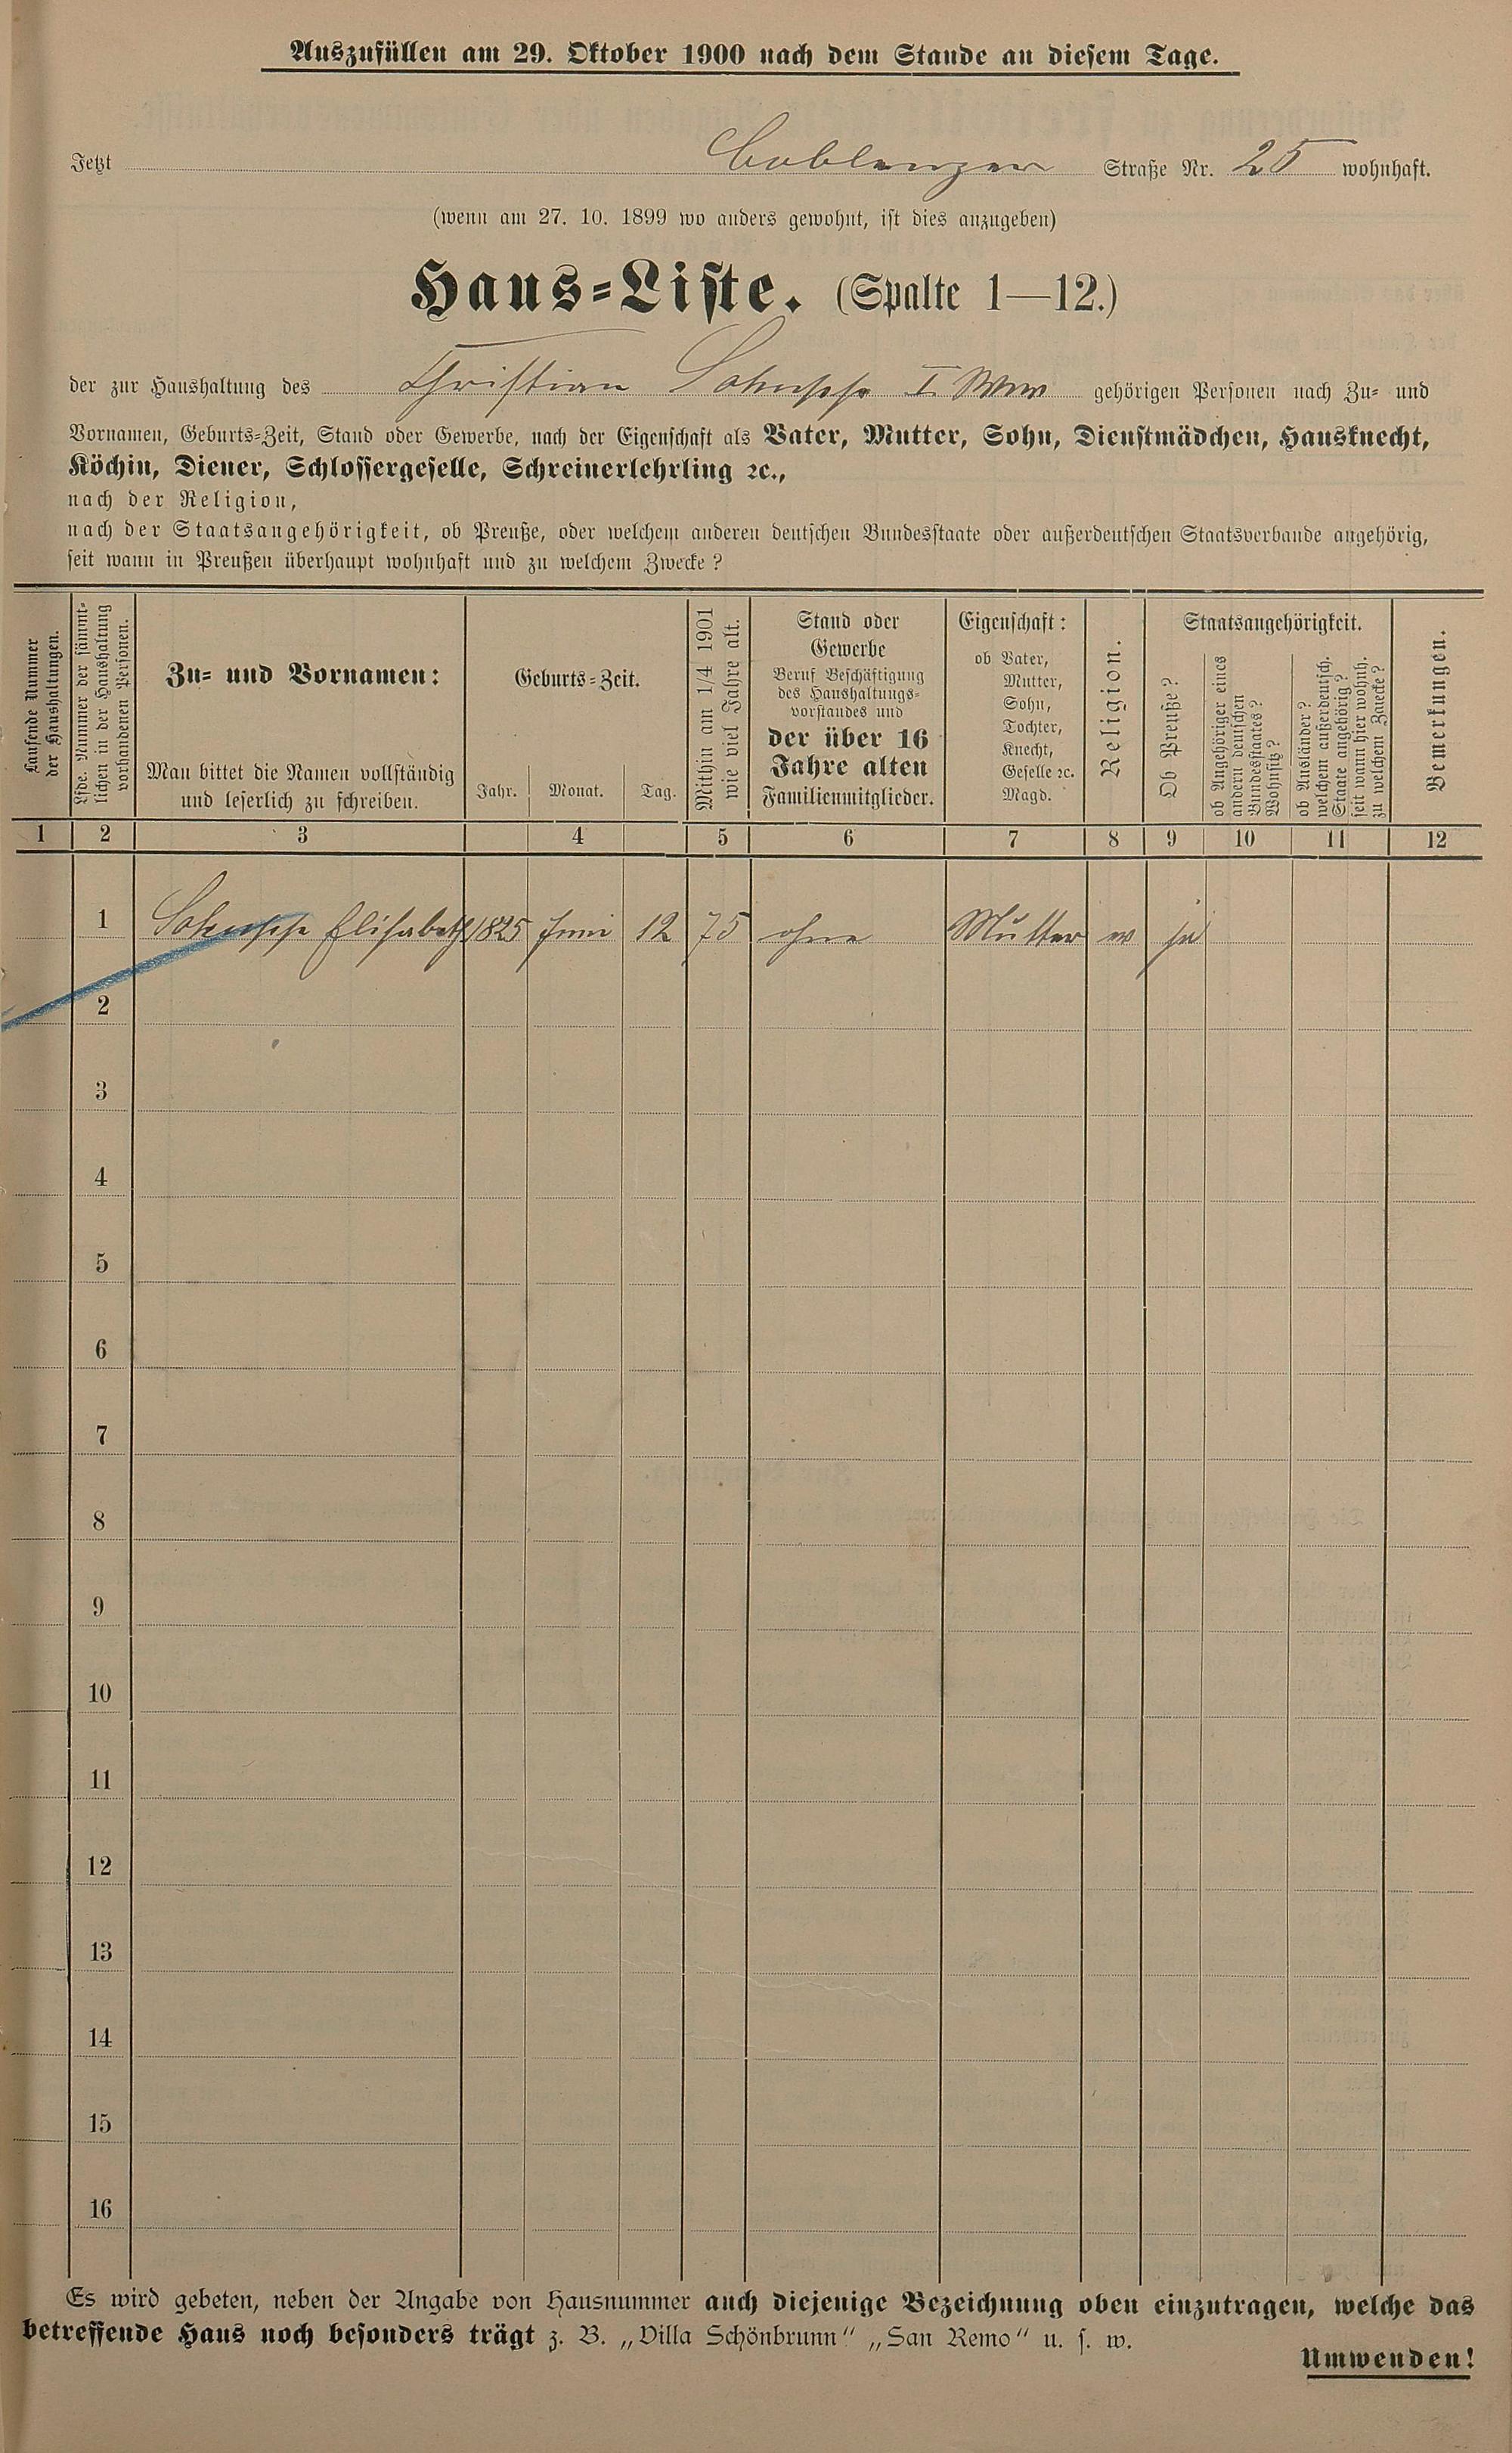 Auszufüllen am 29. Oktober 1900 nach dem Stande an diesem Tage.
Jetzt Coblenzer Straße Nr. 25 wohnhaft.
(wenn am 27. 10. 1899 wo anders gewohnt, ist dies anzugeben)
Haus-Liste. (Spalte 1—12.)
der zur Haushaltung des Christian I. Wwe gehörigen Personen nach Zu- und
Vornamen, Geburts-Zeit, Stand oder Gewerbe, nach der Eigenschaft als Vater, Mutter, Sohn, Dienstmädchen, Hausknecht,
Köchin, Diener, Schlossergeselle, Schreinerlehrling ꝛc.,
nach der Religion,
nach der Staatsangehörigkeit, ob Preuße, oder welchem anderen deutschen Bundesstaate oder außerdeutschen Staatsverbande angehörig,
seit wann in Preußen überhaupt wohnhaft und zu welchem Zwecke?
Laufende Nummer
der Haushaltungen.
Lfde. Nummer der sämmt-
lichen in der Haushaltung
vorhandenen Personen.
Zu- und Vornamen:
Man bittet die Namen vollständig
und leserlich zu schreiben.
Geburts-Zeit.
Jahr. Monat. Tag.
Mithin am 1/4 1901
wie viel Jahre alt.
Stand oder
Gewerbe
Beruf Beschäftigung
des Haushaltungs-
vorstandes und
der über 16
Jahre alten
Familienmitglieder.
Eigenschaft:
ob Vater,
Mutter,
Sohn,
Tochter,
Knecht,
Geselle ꝛc.
Magd.
Religion.
Staatsangehörigkeit.
Ob Preuße?
ob Angehöriger eines
andern deutschen
Bundesstaates?
Wohnsitz?
ob Ausländer?
welchem außerdeutsch.
Staate angehörig?
seit wann hier wohnh.
zu welchem Zwecke?
Bemerkungen.
1 2 3 4 5 6 7 8 9 10 11 12
1 Elisabeth 1825 Juni 12 75 ohne Mutter ja
2
3
4
5
6
7
8
9
10
11
12
13
14
15
16
Es wird gebeten, neben der Angabe von Hausnummer auch diejenige Bezeichnung oben einzutragen, welche das
betreffende Haus noch besonders trägt z. B. „Villa Schönbrunn“ „San Remo“ u. s. w.
Umwenden!